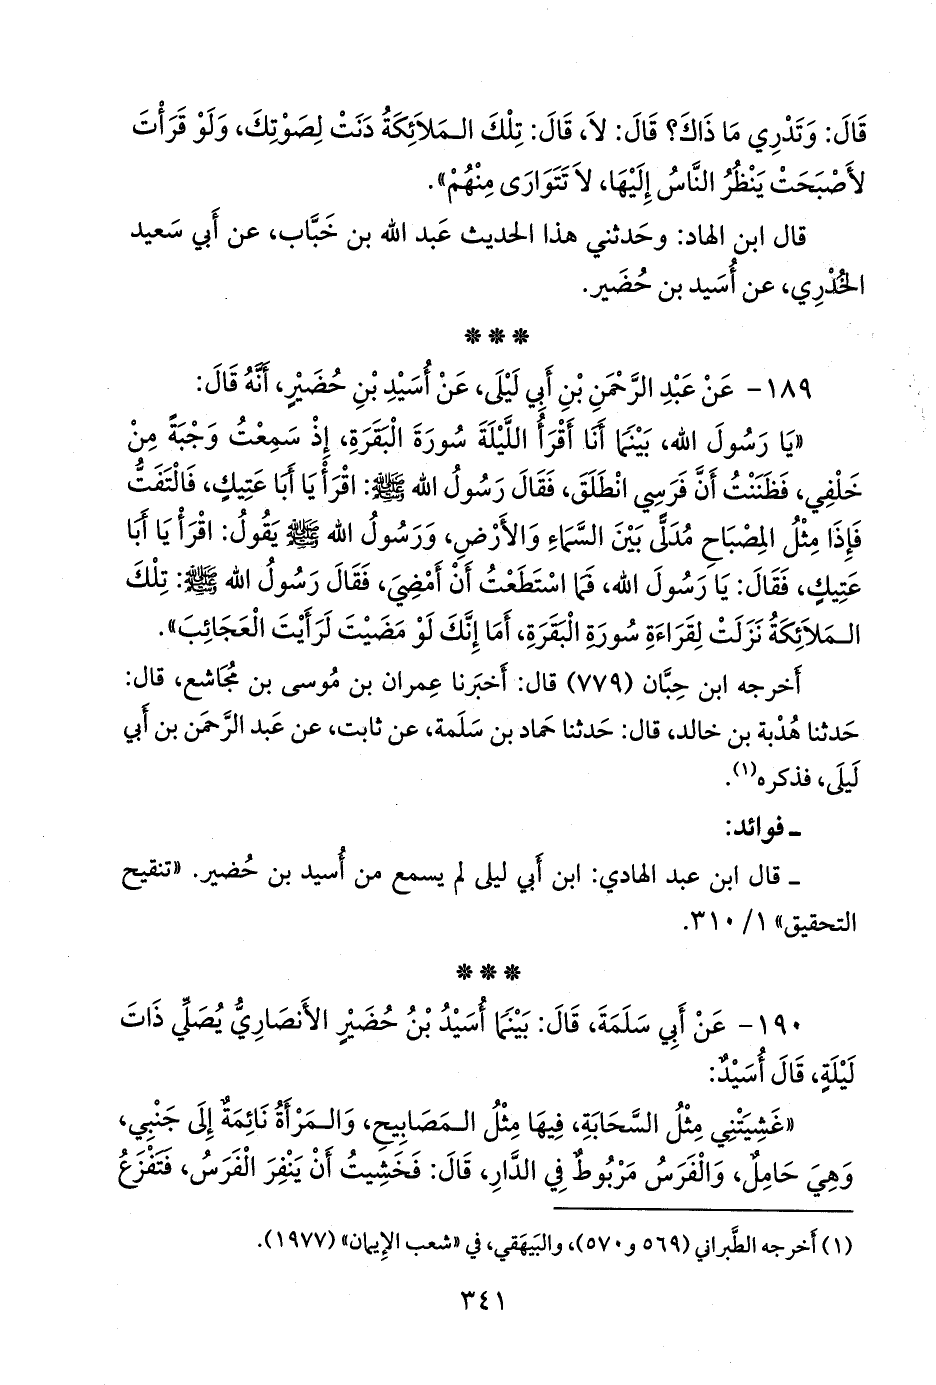 قَالَ: وَتَدْرِي مَا ذَاكَ؟ قَالَ: لاَ، قَالَ: تِلْكَ الـمَلاَئِكَةُ دَنَتْ لِصَوْتِكَ، وَلَوْ قَرَأْتَ
لأَصْبَحَتْ يَنْظُرُ النَّاسُ إِلَيْهَا، لاَ تَتَوَارَى مِنْهُمْ».
قال ابن الهاد: وحَدثني هذا الحديث عَبد الله بن خَبَّاب، عن أَبي سَعيد
الخُدْرِي، عن أُسَيد بن حُضَير.
* * *
١٨٩- عَنْ عَبْدِ الرَّحْمَنِ بْنِ أَبِي لَيْلَى، عَنْ أُسَيْدِ بْنِ حُضَيْرٍ، أَنَّهُ قَالَ:
«يَا رَسُولَ الله، بَيْنَمَا أَنَا أَقْرَأُ اللَّيْلَةَ سُورَةَ الْبَقَرَةِ، إِذْ سَمِعْتُ وَجْبَةً مِنْ
خَلْفِي، فَظَنَنْتُ أَنَّ فَرَسِي انْطَلَقَ، فَقَالَ رَسُولُ الله ﷺ: اقْرَأْ يَا أَبَا عَتِيكٍ، فَالْتَفَتُّ
فَإِذَا مِثْلُ المِصْبَاحِ مُدَلًّى بَيْنَ السَّمَاءِ وَالأَرْضِ، وَرَسُولُ الله ﷺ يَقُولُ: اقْرَأْ يَا أَبَا
عَتِيكٍ، فَقَالَ: يَا رَسُولَ الله، فَمَا اسْتَطَعْتُ أَنْ أَمْضِيَ، فَقَالَ رَسُولُ الله ﷺ: تِلْكَ
الـمَلاَئِكَةُ نَزَلَتْ لِقِرَاءَةِ سُورَةِ الْبَقَرَةِ، أَمَا إِنَّكَ لَوْ مَضَيْتَ لَرَأَيْتَ الْعَجَائِبَ».
أَخرجه ابن حِبَّان (٧٧٩) قال: أَخبَرنا عِمران بن مُوسى بن مُجَاشع، قال:
حَدثنا هُدْبة بن خالد، قال: حَدثنا حَماد بن سَلَمة، عن ثابت، عن عَبد الرَّحمَن بن أَبي
لَيلَى، فذكره(١).
ـ فوائد:
ـ قال ابن عبد الهادي: ابن أَبي ليلى لم يسمع من أُسيد بن حُضير. «تنقيح
التحقيق» ١/ ٣١٠.
* * *
١٩٠- عَنْ أَبِي سَلَمَةَ، قَالَ: بَيْنَمَا أُسَيْدُ بْنُ حُضَيْرٍ الأَنصَارِيُّ يُصَلِّي ذَاتَ
لَيْلَةٍ، قَالَ أُسَيْدٌ:
«غَشِيَتْنِي مِثْلُ السَّحَابَةِ، فِيهَا مِثْلُ الـمَصَابِيحِ، وَالـمَرْأَةُ نَائِمَةٌ إِلَى جَنْبِي،
وَهِيَ حَامِلٌ، وَالْفَرَسُ مَرْبُوطٌ فِي الدَّارِ، قَالَ: فَخَشِيتُ أَنْ يَنْفِرَ الْفَرَسُ، فَتَفْزَعُ
(١) أَخرجه الطَّبراني (٥٦٩ و٥٧٠)، والبَيهَقي، في «شعب الإِيمان» (١٩٧٧).
٣٤١